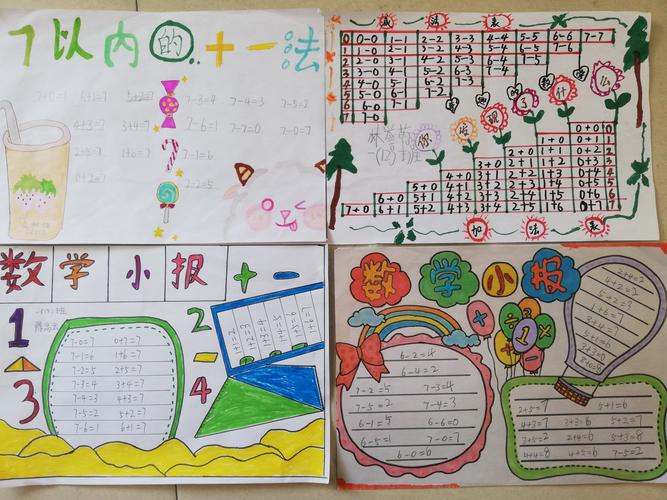 7以内的+一法
6+1=7
5+2=7
7-3=4
7-4=3
7-5=2
4+3=7
3+4=7
7-6=1
7-7=0
7-0=7
2+5=7
1+6=7
7-1=6
减法表
0 0-0 1-1 2-2 3-3 4-4 5-5 6-6 7-7
1 1-0 2-1 3-2 4-3 5-4 6-5 7-6
2 2-0 3-1 4-2 5-3 6-4 7-5
3 3-0 4-1 5-2 6-3 7-4
4 4-0 5-1 6-2 7-3
5 5-0 6-1 7-2
6 6-0 7-1
7 7-0
你发现了
什么
0+0 0
1+0 0+1 1
2+0 1+1 0+2 2
3+0 2+1 1+2 0+3 3
4+0 3+1 2+2 1+3 0+4 4
5+0 4+1 3+2 2+3 1+4 0+5 5
6+0 5+1 4+2 3+3 2+4 1+5 0+6 6
7+0 6+1 5+2 4+3 3+4 2+5 1+6 0+7 7
加法表
数学小报+-
1
2
3
4
7-0=7 0+7=7
7-1=6 1+6=7
7-2=5 2+5=7
7-3=4 3+4=7
7-4=3 4+3=7
7-5=2 5+2=7
7-6=1 6+1=7
1+1=2
1+2=3
1+3=4
1+4=5
1+5=6
1+6=7
数学小报
6-2=4
6-4=2
7-2=5 7-3=4
7-5=2 7-4=3
6-1=5 6-6=0
6-5=1 7-0=7
6-0=6
2+2=4
1+6=7
2+5=7 5+1=6
4+3=7 3+3=6 6+2=8
2+4=6 5+3=8
4+4=8 7-5=2